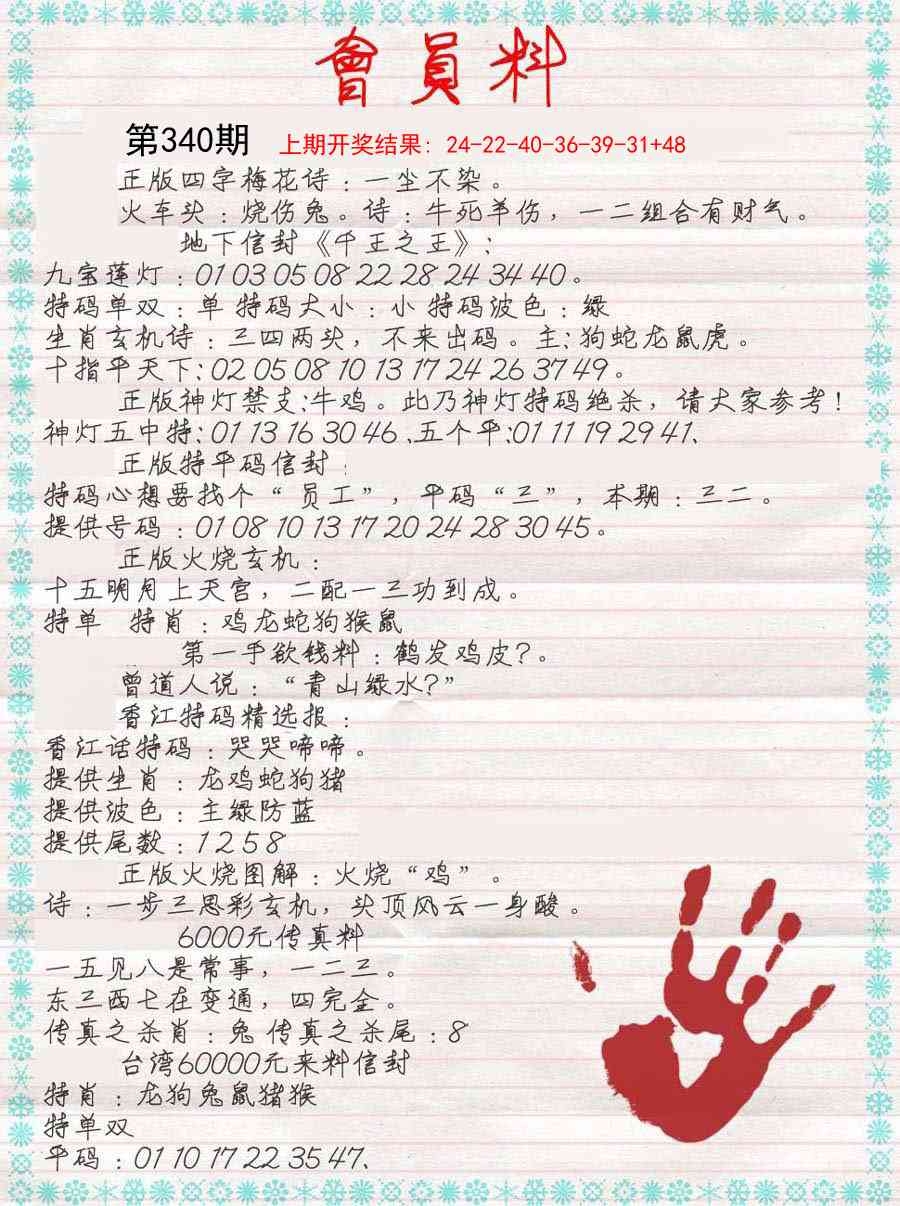 會員料
第340期 上期开奖结果: 24-22-40-36-39-31+48
正版四字梅花诗：一尘不染。
火车头：烧伤兔。诗：牛死羊伤，一二组合有财气。
地下信封《千王之王》：
九宝莲灯：01 03 05 08 22 28 24 34 40。
特码单双：单 特码大小：小 特码波色：绿
生肖玄机诗：三四两头，不来出码。主:狗蛇龙鼠虎。
十指平天下:02 05 08 10 13 17 24 26 37 49。
正版神灯禁支:牛鸡。此乃神灯特码绝杀，请大家参考!
神灯五中特:01 13 16 30 46、五个平:01 11 19 29 41、
正版特平码信封：
特码心想要找个“员工”，平码“三”，本期：三二。
提供号码：01 08 10 13 17 20 24 28 30 45。
正版火烧玄机：
十五明月上天宫，二配一三功到成。
特单 特肖：鸡龙蛇狗猴鼠
第一手欲钱料：鹤发鸡皮?。
曾道人说：“青山绿水?”
香江特码精选报：
香江话特码：哭哭啼啼。
提供生肖：龙鸡蛇狗猪
提供波色：主绿防蓝
提供尾数：1 2 5 8
正版火烧图解：火烧“鸡”。
诗：一步三思彩玄机，头顶风云一身酸。
6000元传真料
一五见八是常事，一二三。
东三西七在变通，四完金。
传真之杀肖：兔 传真之杀尾：8
台湾60000元来料信封
特肖：龙狗兔鼠猪猴
特单双
平码：01 10 17 22 35 47、